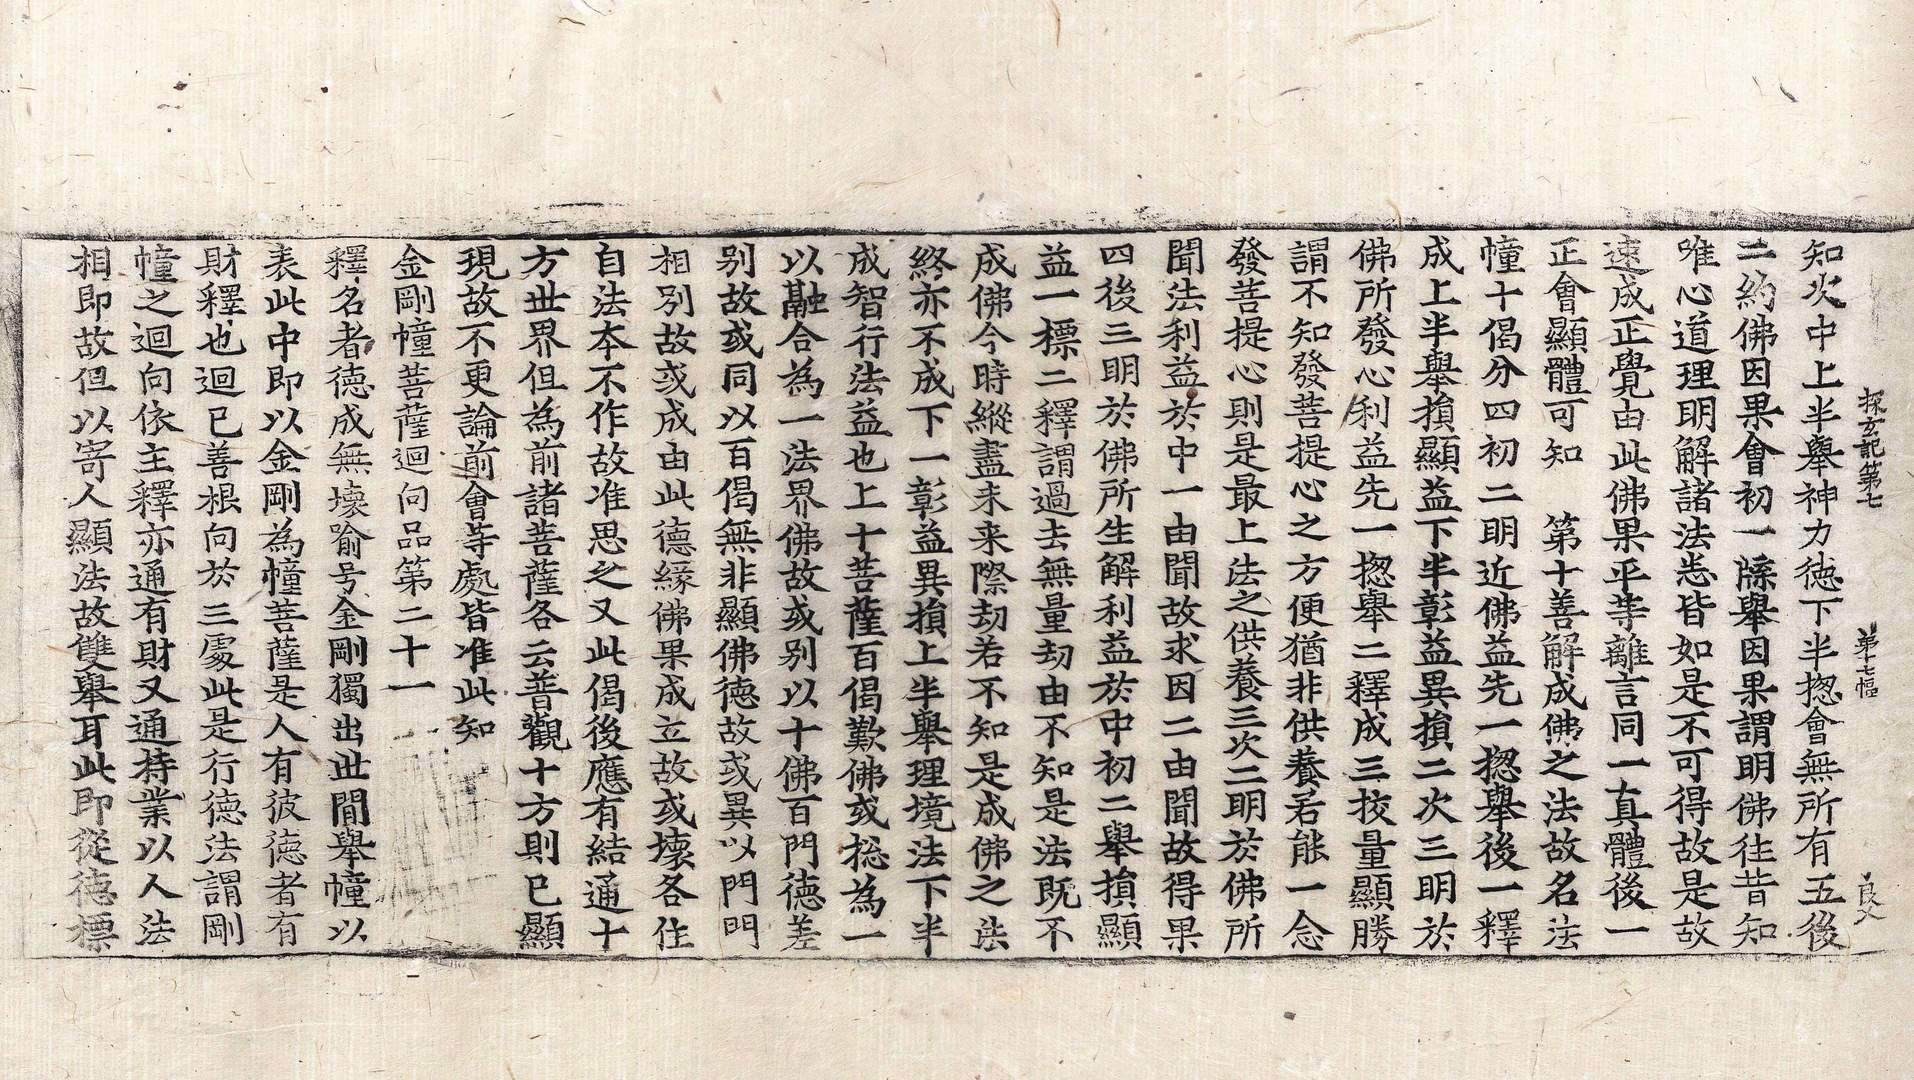 探玄記第七　第十七幅　良乂
知次中上半舉神力德下半揔會無所有五後
二約佛因果會初一牒舉因果謂明佛往昔知
唯心道理明解諸法悉皆如是不可得故是故
速成正覺由此佛果平等離言同一真體後一
正會顯體可知　第十善解成佛之法故名法
幢十偈分四初二明近佛益先一揔舉後一釋
成上半舉損顯益下半彰益異損二次三明於
佛所發心利益先一揔舉二釋成三挍量顯勝
謂不知發菩提心之方便猶非供養若能一念
發菩提心則是最上法之供養三次二明於佛所
聞法利益於中一由聞故求因二由聞故得果
四後三明於佛所生解利益於中初二舉損顯
益一標二釋謂過去無量劫由不知是法既不
成佛今時縱盡未来際劫若不知是成佛之法
終亦不成下一彰益異損上半舉理境法下半
成智行法益也上十菩薩百偈歎佛或捴為一
以融合為一法界佛故或別以十佛百門德差
別故或同以百偈無非顯佛德故或異以門門
相別故或成由此德緣佛果成立故或壞各住
自法本不作故准思之又此偈後應有結通十
方世界但為前諸菩薩各云普觀十方則已顯
現故不更論前會等處皆准此知
金剛幢菩薩迴向品第二十一
釋名者德成無壞喻号金剛獨出世間舉幢以
表此中即以金剛為幢菩薩是人有彼德者有
財釋也迴已善根向於三處此是行德法謂剛
幢之迴向依主釋亦通有財又通持業以人法
相即故但以寄人顯法故雙舉耳此即從德標